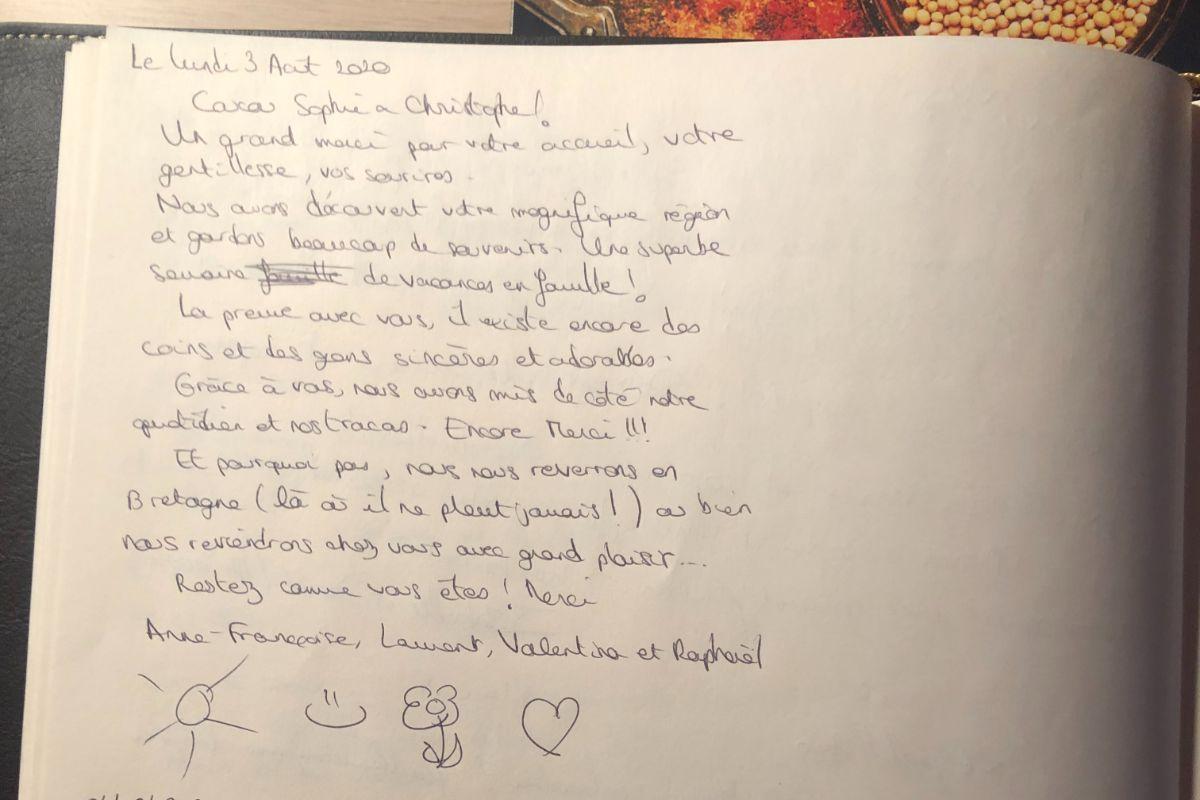 Le lundi 3 Août 2020
Sophie Christophe!
Un grand merci pour votre accueil, votre
gentillesse, vos sourires.
Nous avons découvert votre magnifique région
et gardons beaucoup de souvenirs. Une superbe
semaine de vacances en famille!
La preuve avec vous, il existe encore des
coins et des gens sincères et adorables.
Grâce à vous, nous avons mis de côté notre
quotidien et nos tracas. Encore Merci!!!
Et pourquoi pas, nous nous reverrons en
Bretagne (là où il ne pleut jamais!) ou bien
nous reviendrons chez vous avec grand plaisir...
Restez comme vous êtes! Merci
Anne-Françoise, Laurent, Valentina et Raphaël